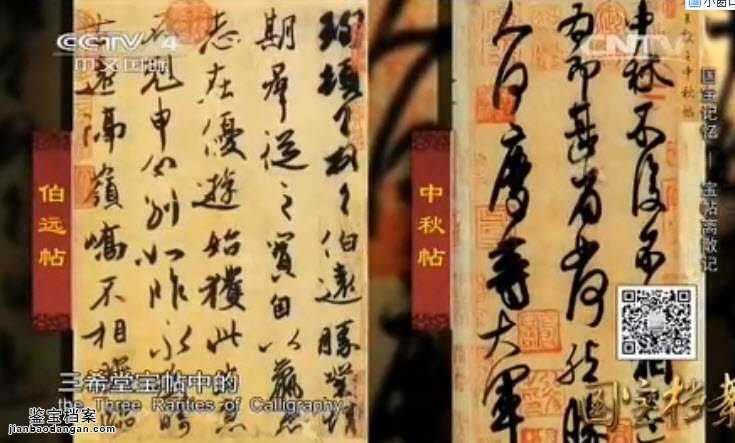 小窗口
CCTV 4
中文国际
CNTV
珣頓首頓首伯遠勝業情
期群從之寶自以羸患
志在優遊始獲此出意
不剋申分別如昨永為疇
古遠隔嶺嶠不相瞻
伯远帖
中秋不復不得相還
為即甚省如何然勝
人何慶等大軍
中秋帖
国宝记忆——宝帖离散记
三希堂宝帖中的
the Three Rarities of Calligraphy
国宝档案
鉴宝档案
jianbaodangan.com